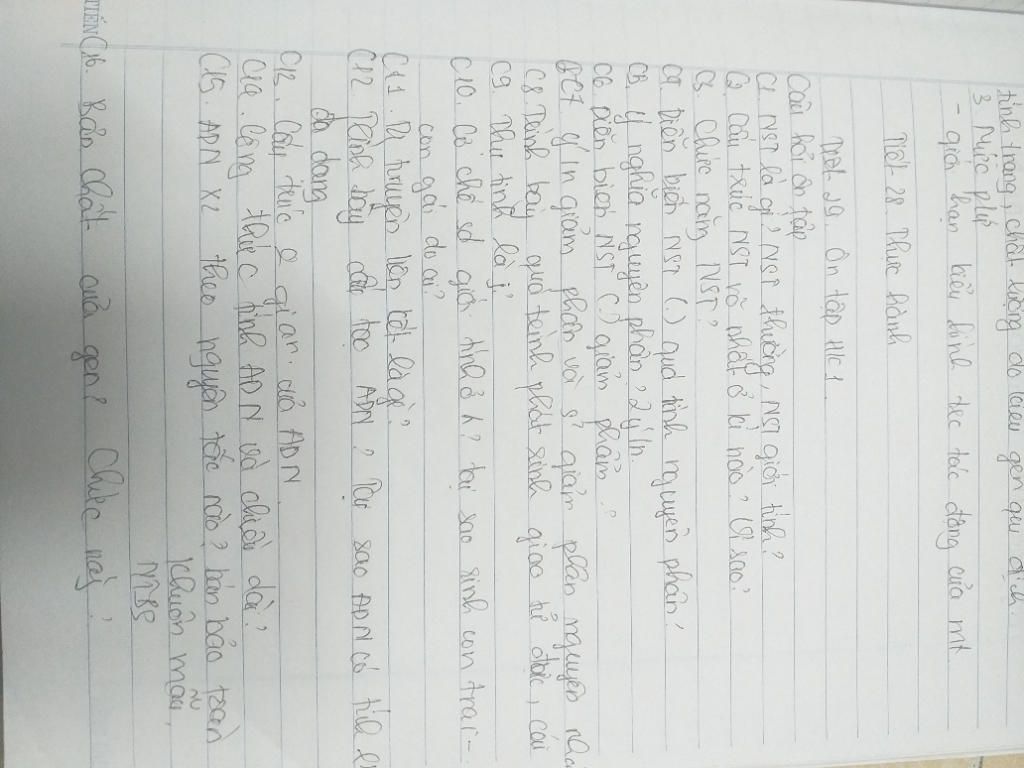 tính trạng, chất lượng do kiểu gen qui định.
3. Mức pứ
- giới hạn kiểu hình tác động của mt
Tiết 28. Thực hành
Tiết 29. Ôn tập HK1
Câu hỏi ôn tập
C1. NST là gì? NST thường, NST giới tính?
C2. Cấu trúc NST rõ nhất ở kì nào? Vì sao?
C3. Chức năng NST?
C4. Diễn biến NST (.) quá trình nguyên phân?
C5. Ý nghĩa nguyên phân? 2 ý/n.
C6. Diễn biến NST (.) giảm phân?
C7. Ý/n giảm phân và s² giảm phân nguyên
C8. Trình bày quá trình phát sinh giao tử đực, cái
C9. Thụ tinh là j?
C10. Cơ chế sđ giới tính ở? tại sao sinh con trai -
con gái do ai?
C11. Di truyền liên kết là gì?
C12. Trình bày cấu tạo ADN? Tại sao ADN có tính
đa dạng
C13. Cấu trúc o gian của ADN
C14. Công thức tính ADN và chiều dài?
C15. ADN x2 theo nguyên tắc nào? bán bảo toàn
khuôn mẫu,
NTBS
TIẾN
C16. Bản chất của gen? Chức năg?